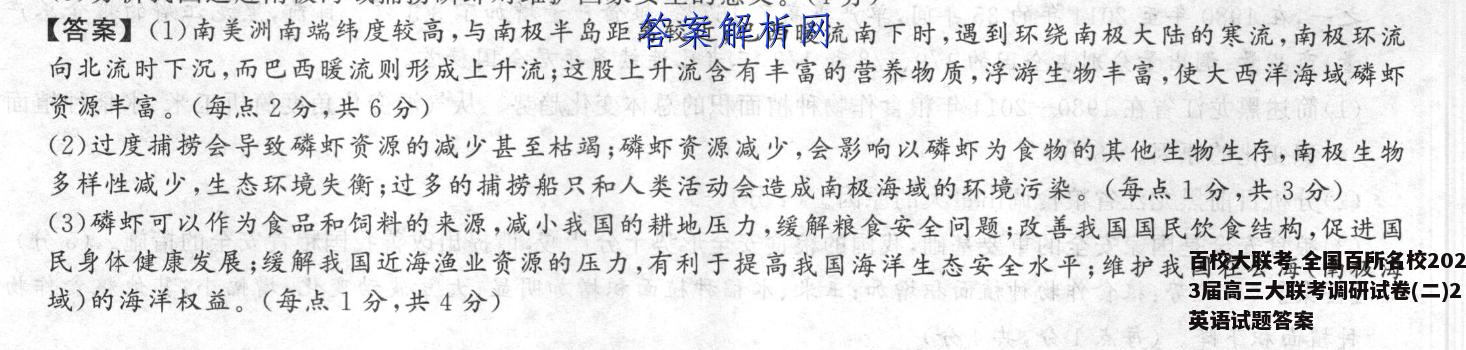 【答案】(1)南美洲南端纬度较高,与南极半岛距离较近;巴西暖流南下时,遇到环绕南极大陆的寒流,南极环流
答案解析网
向北流时下沉,而巴西暖流则形成上升流;这股上升流含有丰富的营养物质,浮游生物丰富,使大西洋海域磷虾
资源丰富。(每点 2 分,共 6 分)
(2)过度捕捞会导致磷虾资源的减少甚至枯竭;磷虾资源减少,会影响以磷虾为食物的其他生物生存,南极生物
多样性减少,生态环境失衡;过多的捕捞船只和人类活动会造成南极海域的环境污染。(每点 1 分,共 3 分)
(3)磷虾可以作为食品和饲料的来源,减小我国的耕地压力,缓解粮食安全问题;改善我国国民饮食结构,促进国
民身体健康发展;缓解我国近海渔业资源的压力,有利于提高我国海洋生态安全水平;维护我国在公海(南极海
域)的海洋权益。(每点 1 分,共 4 分)
百校大联考 全国百所名校202
3届高三大联考调研试卷(二)2
英语试题答案